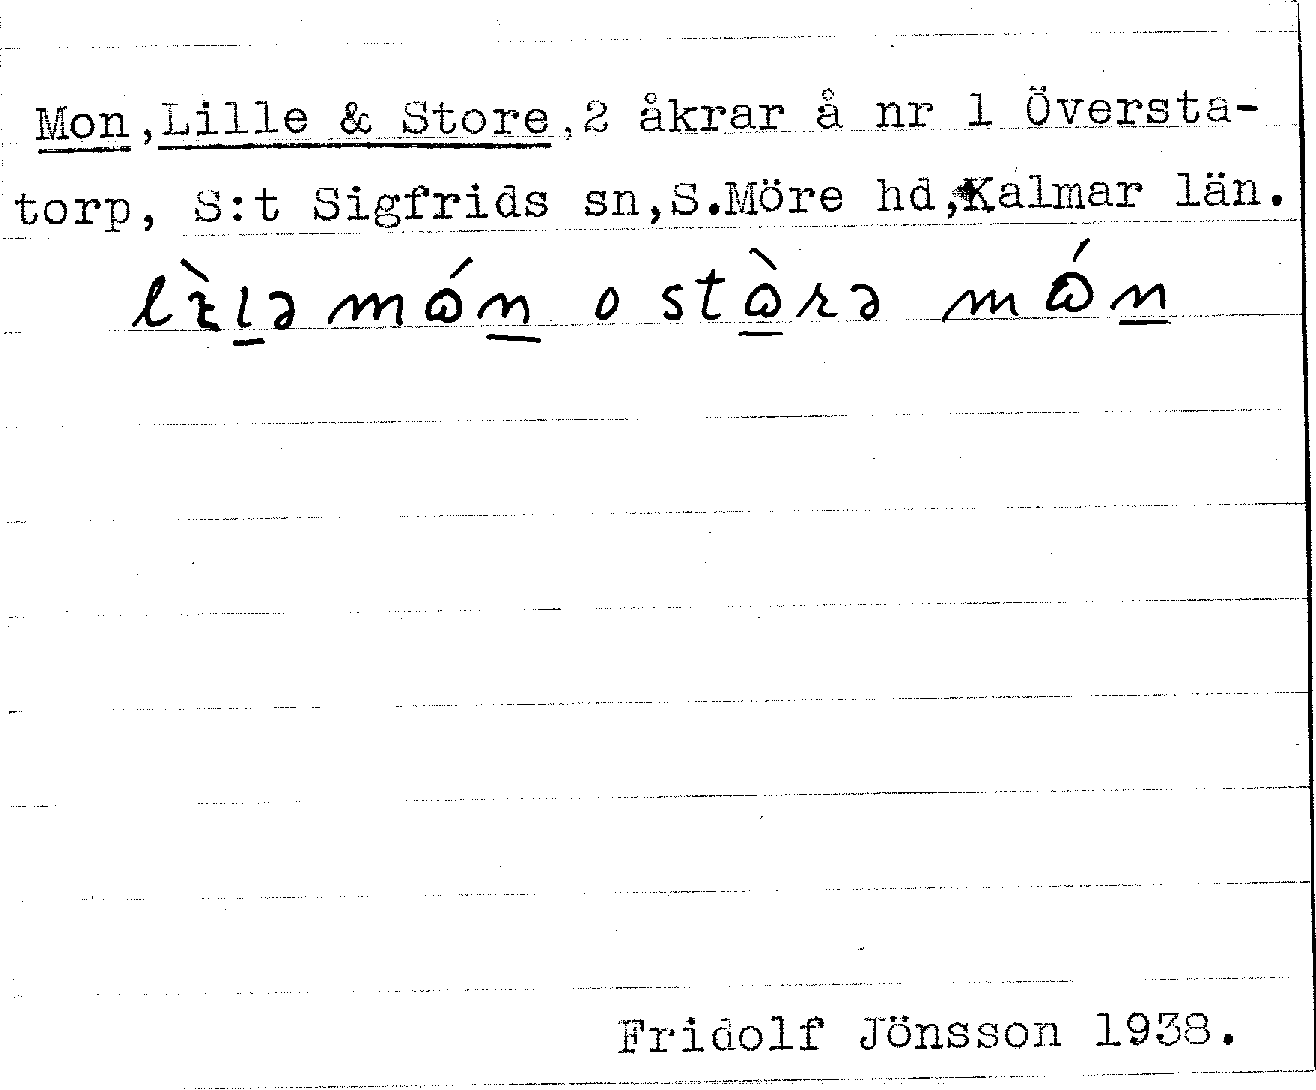 Mon,Lille & Store,2 åkrar å nr 1 Översta-
torp, S:t Sigfrids sn,S.Möre hd,Kalmar län.
lìlə món o stòrə món
Fridolf Jönsson 1938.